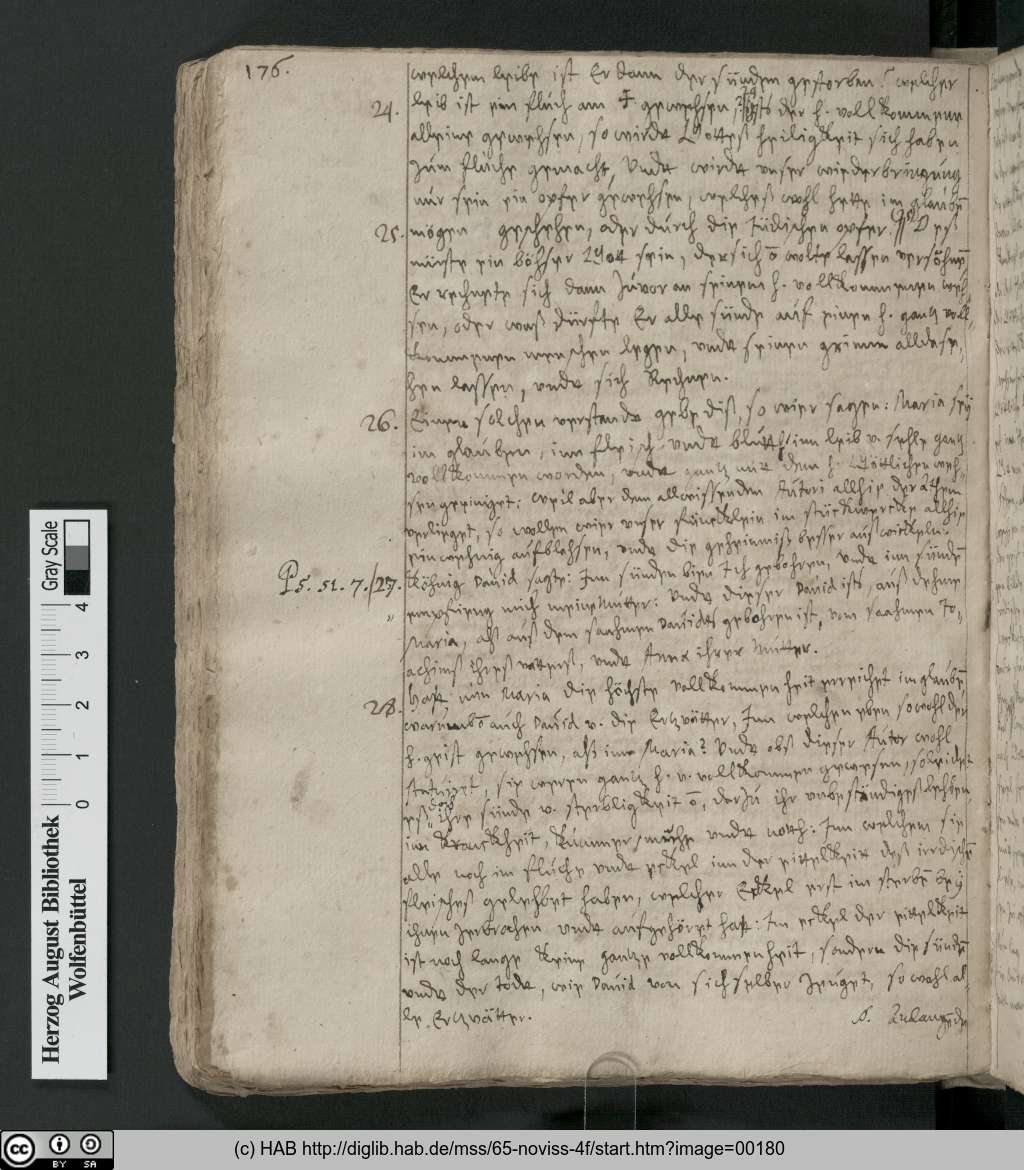 176.
welchem leibe ist Er dann der sünden gestorben? welcher
24. leib ist ein fluch am † gewehsen, ists der h. vollkommene
alleine gewehsen, so wirdt Gottes heiligkeit sich haben
zum fluche gemacht, Undt wirdt unser wiederbringung
nur sein ein opfer gewehsen, welcheß wohl hette im glauben
25. mögen geschehen, oder durch die Jüdischen opfer. Eß
müiste ein böhser Gott sein, der sich wolte lassen versöhnen
Er rechnete sich dann zuvor an seinem h. vollkommenen weh-
sen, oder waß dürfte Er alle sünde auf einen h. gantz voll-
kommenen menschen legen, undt seinen grimm alldase-
hen lassen, undt sich Rechnen.
26. Einen solchen verstandt gebe diß, so wier sagen: Maria sey
im glauben, inn fleisch undt bluth, inn leib v. sehle gantz
vollkommen worden, undt gantz mit dem h. Göttlichen weh-
sen geeiniget: weil aber dem allwissenden Autori allhie der Athem
verlieget, so wollen wier unser füncklein im stückwercke allhie
ein wehnig aufblohsen, undt die geheimniß besser außwickeln.
Ps. 51. 7. / 27. Köhnig David sagte: Inn sünden bin Ich gebohren, undt inn sünden
„ empfieng mich meine Mutter: Undt dieser David ists, auß dehme
Maria, alß auß dem saahmen Davides gebohren ist, vom saahmen Jo-
achimß ihres vatterß, undt Anna ihrer Mutter.
28. Hatt nun Maria die höchste vollkommenheit erreichet im glauben
warumb auch David v. die Ertzvätter, Inn welchen eben sowohl der
h. geist gewehsen, alß inn Maria? Undt obß dieser Autor wohl
statuiret, sie weren gantz h. v. vollkommen gewesen, so leidet
eß doch ihre sünde v. sterbligkeit, darzu ihr unbeständiges lehben
im Kranckheit, Kummer, müehe undt noth: Inn welchem sie
alle noch im fluche undt eckel inn der eittelkeit deß irrdischen
fleisches gelehbet haben, welcher Eckel erst im sterben bey
ihnen zerbrochen undt aufgehöret hatt: Im eckel der eittelkeit
ist noch lange keine gantze vollkommenheit, sondern die sünde
undt der todt, wie David von sich selber zeuget, so wohl al-
le Ertzvätter.
Anlangende
Herzog August Bibliothek
Wolfenbüttel
0 1 2 3 4
Gray Scale
cc BY SA
(c) HAB http://diglib.hab.de/mss/65-noviss-4f/start.htm?image=00180